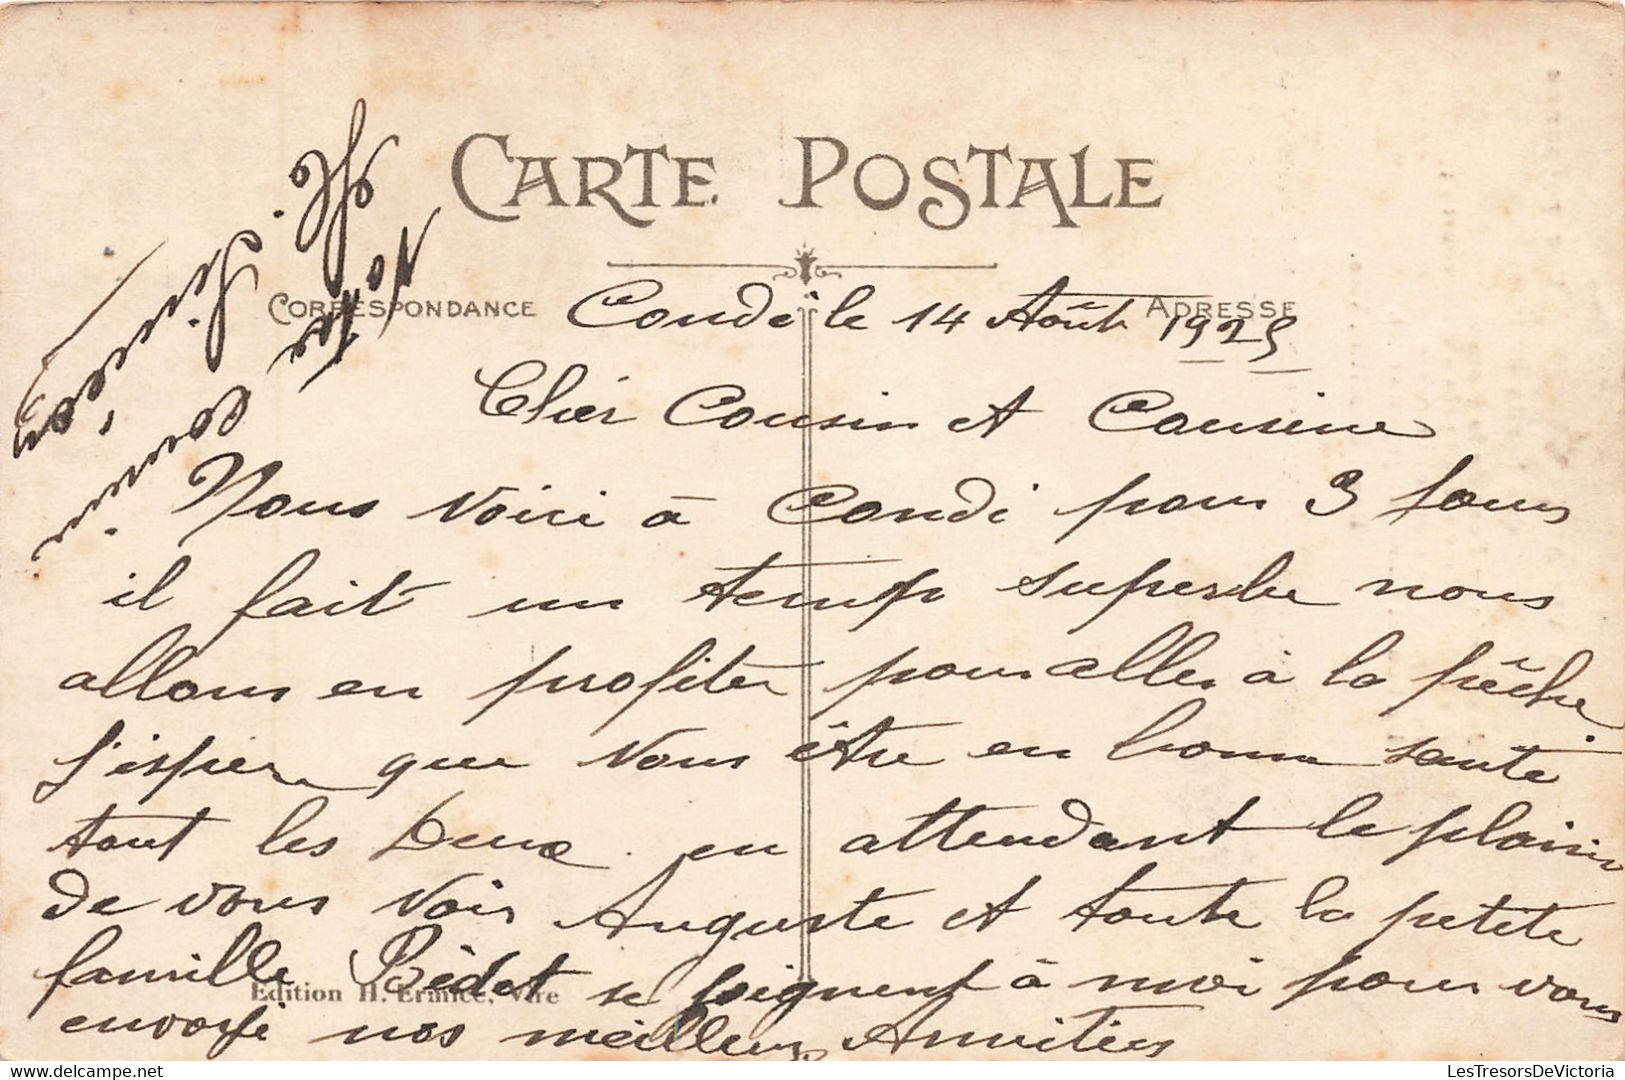 CARTE POSTALE
CORRESPONDANCE
ADRESSE
Condé le 14 Août 1925
Cher Cousin et Cousine
Nous voici à Condé pour 3 jours
il fait un temp superbe nous
allons en profiter pour aller à la pêche
J'espère que vous être en bonne santé
tout les deux en attendant le plaisir
de vous voir Auguste et toute la petite
famille Bédet se joignent à moi pour vous
envoyé nos meilleurs Amitiés
Votre cousin
H.
Edition H. Ermice, Vire
LesTresorsDeVictoria